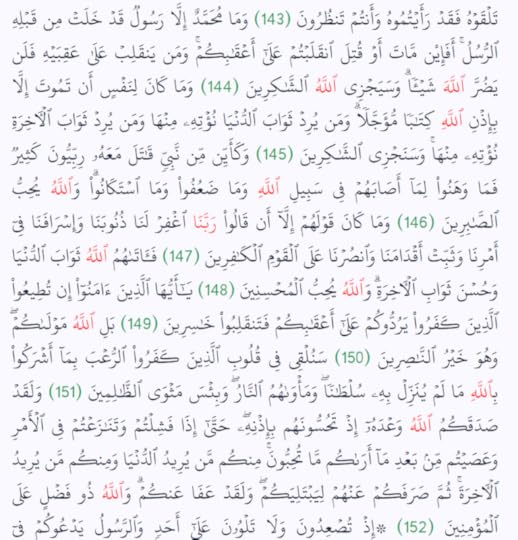 تَلْقَوْهُ فَقَدْ رَأَيْتُمُوهُ وَأَنتُمْ تَنظُرُونَ (143) وَمَا مُحَمَّدٌ إِلَّا رَسُولٌ قَدْ خَلَتْ مِن قَبْلِهِ
ٱلرُّسُلُ ۚ أَفَإِي۟ن مَّاتَ أَوْ قُتِلَ ٱنقَلَبْتُمْ عَلَىٰٓ أَعْقَٰبِكُمْ ۚ وَمَن يَنقَلِبْ عَلَىٰ عَقِبَيْهِ فَلَن
يَضُرَّ ٱللَّهَ شَيْـًٔا ۗ وَسَيَجْزِى ٱللَّهُ ٱلشَّٰكِرِينَ (144) وَمَا كَانَ لِنَفْسٍ أَن تَمُوتَ إِلَّا
بِإِذْنِ ٱللَّهِ كِتَٰبًا مُّؤَجَّلًا ۗ وَمَن يُرِدْ ثَوَابَ ٱلدُّنْيَا نُؤْتِهِۦ مِنْهَا وَمَن يُرِدْ ثَوَابَ ٱلْـَٔاخِرَةِ
نُؤْتِهِۦ مِنْهَا ۚ وَسَنَجْزِى ٱلشَّٰكِرِينَ (145) وَكَأَيِّن مِّن نَّبِىٍّ قَٰتَلَ مَعَهُۥ رِبِّيُّونَ كَثِيرٌ
فَمَا وَهَنُوا۟ لِمَآ أَصَابَهُمْ فِى سَبِيلِ ٱللَّهِ وَمَا ضَعُفُوا۟ وَمَا ٱسْتَكَانُوا۟ ۗ وَٱللَّهُ يُحِبُّ
ٱلصَّٰبِرِينَ (146) وَمَا كَانَ قَوْلَهُمْ إِلَّآ أَن قَالُوا۟ رَبَّنَا ٱغْفِرْ لَنَا ذُنُوبَنَا وَإِسْرَافَنَا فِىٓ
أَمْرِنَا وَثَبِّتْ أَقْدَامَنَا وَٱنصُرْنَا عَلَى ٱلْقَوْمِ ٱلْكَٰفِرِينَ (147) فَـَٔاتَىٰهُمُ ٱللَّهُ ثَوَابَ ٱلدُّنْيَا
وَحُسْنَ ثَوَابِ ٱلْـَٔاخِرَةِ ۗ وَٱللَّهُ يُحِبُّ ٱلْمُحْسِنِينَ (148) يَٰٓأَيُّهَا ٱلَّذِينَ ءَامَنُوٓا۟ إِن تُطِيعُوا۟
ٱلَّذِينَ كَفَرُوا۟ يَرُدُّوكُمْ عَلَىٰٓ أَعْقَٰبِكُمْ فَتَنقَلِبُوا۟ خَٰسِرِينَ (149) بَلِ ٱللَّهُ مَوْلَىٰكُمْ ۖ
وَهُوَ خَيْرُ ٱلنَّٰصِرِينَ (150) سَنُلْقِى فِى قُلُوبِ ٱلَّذِينَ كَفَرُوا۟ ٱلرُّعْبَ بِمَآ أَشْرَكُوا۟
بِٱللَّهِ مَا لَمْ يُنَزِّلْ بِهِۦ سُلْطَٰنًا ۖ وَمَأْوَىٰهُمُ ٱلنَّارُ ۚ وَبِئْسَ مَثْوَى ٱلظَّٰلِمِينَ (151) وَلَقَدْ
صَدَقَكُمُ ٱللَّهُ وَعْدَهُۥٓ إِذْ تَحُسُّونَهُم بِإِذْنِهِۦ ۖ حَتَّىٰٓ إِذَا فَشِلْتُمْ وَتَنَٰزَعْتُمْ فِى ٱلْأَمْرِ
وَعَصَيْتُم مِّنۢ بَعْدِ مَآ أَرَىٰكُم مَّا تُحِبُّونَ ۚ مِنكُم مَّن يُرِيدُ ٱلدُّنْيَا وَمِنكُم مَّن يُرِيدُ
ٱلْـَٔاخِرَةَ ۚ ثُمَّ صَرَفَكُمْ عَنْهُمْ لِيَبْتَلِيَكُمْ ۖ وَلَقَدْ عَفَا عَنكُمْ ۗ وَٱللَّهُ ذُو فَضْلٍ عَلَى
ٱلْمُؤْمِنِينَ (152) ۞إِذْ تُصْعِدُونَ وَلَا تَلْوُۥنَ عَلَىٰٓ أَحَدٍ وَٱلرَّسُولُ يَدْعُوكُمْ فِىٓ